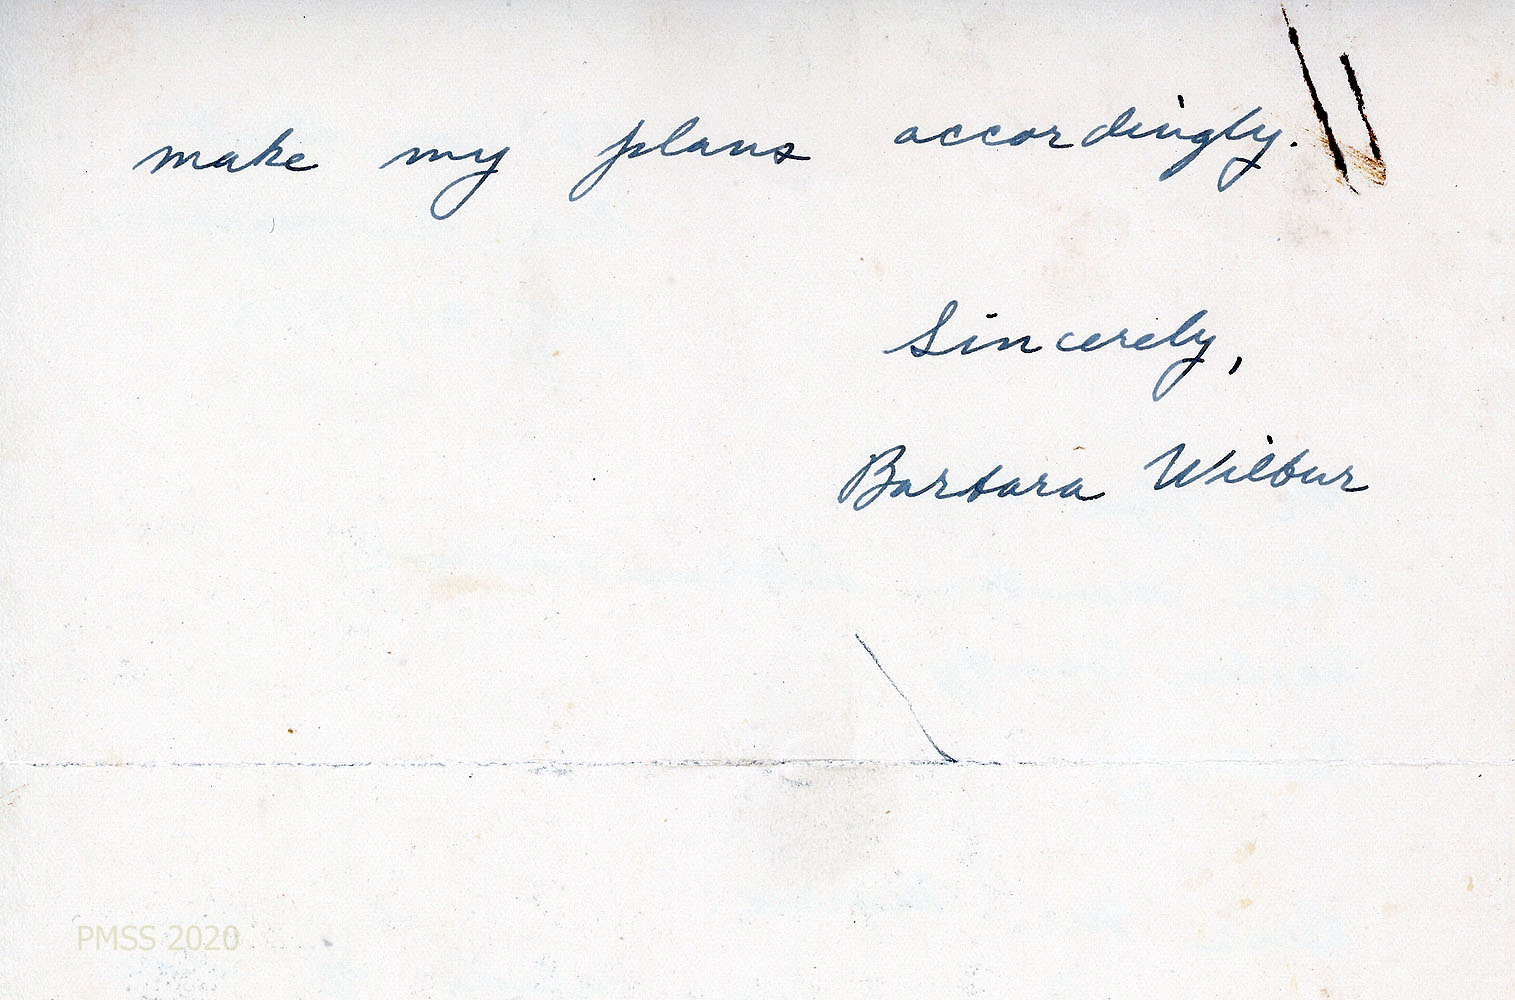 make my plans accordingly.
Sincerely,
Barbara Wilbur
PMSS 2020